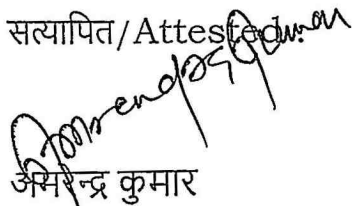 सत्यापित/Attested.
अमरेन्द्र कुमार